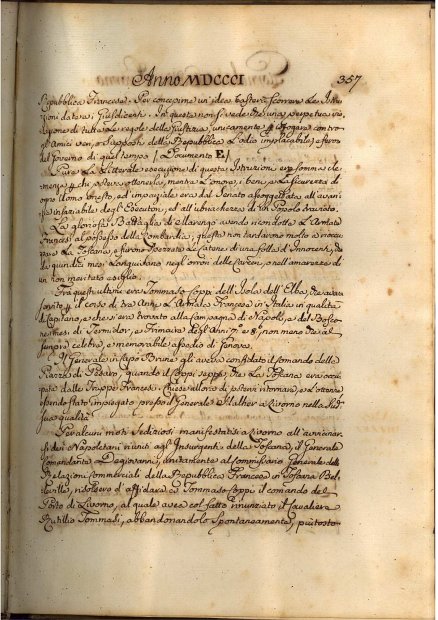 Anno MDCCCI
357
Repubblica Francese. Per concepirne un' idea basterà scorrere le Istru-
zioni date ai Giusdicenti. In queste non si vede che una perpetua vio-
lazione di tutte le regole della Giustizia, unicamente sfogare contro
gl' Amici veri, o supposti della Repubblica l' odio implacabile, e furore
del Governo di quel tempo (Documento E)
Pure la litterale esecuzione di queste Istruzioni era somma cle-
menza per chi poteva ottenerla, mentre l' onore, i beni, e la sicurezza di
ogni Uomo onesto, ed imparziale era dal Senato assoggettata all' avari-
zia insaziabile dei Esecutori, ed all' ubriachezza di un Popolo traviato.
La gloriosa Battaglia di Marengo avendo ricondotta l' Armata
Francese al possesso della Lombardia, questa non tardò molto a rioccu-
pare la Toscana, e furono spezzate le catene di una folla d' Innocenti, che
da quindici mesi languivano negl' orrori delle Carceri, o nell' amarezza di
un non meritato esiglio.
Fra questi ultimi era Tommaso Coppi dell' Isola dell' Elba, che aveva
servito per il corso di tre anni l' Armata Francese in Italia in qualità
di Capitano, e che si era trovato alla Campagna di Napoli, a del Bosco
nei mesi di Termidor, e Frimaire degl' Anni 7.° e 8.° non meno che al
lungo e celebre, e memorabile assedio di Genova.
Il Generale in Capo Brune gli aveva confidato il comando della
Piazza di Pesaro, quando il Coppi seppe, che la Toscana era occu-
pata dalle Truppe Francesi. Chiese allora di potervi ritornare, e l' ottenne
essendo stato impiegato presso il Generale Malher a Livorno nella sud.a
sua qualità.
Per alcuni moti sediziosi manifestatisi a Livorno all' avvicinar-
si dei Napoletani riuniti agl' Insurgenti della Toscana, il Generale
Comandante Degiovanni, unitamente al Commissario Generale delle
Relazioni Commerciali della Repubblica Francese in Toscana Bel-
leville, risolvero d' affidare a Tommaso Coppi il comando del
Porto di Livorno, al quale avea col fatto rinunziato il Cavaliere
Rutilio Tommasi, abbandonandolo spontaneamente, piuttosto-